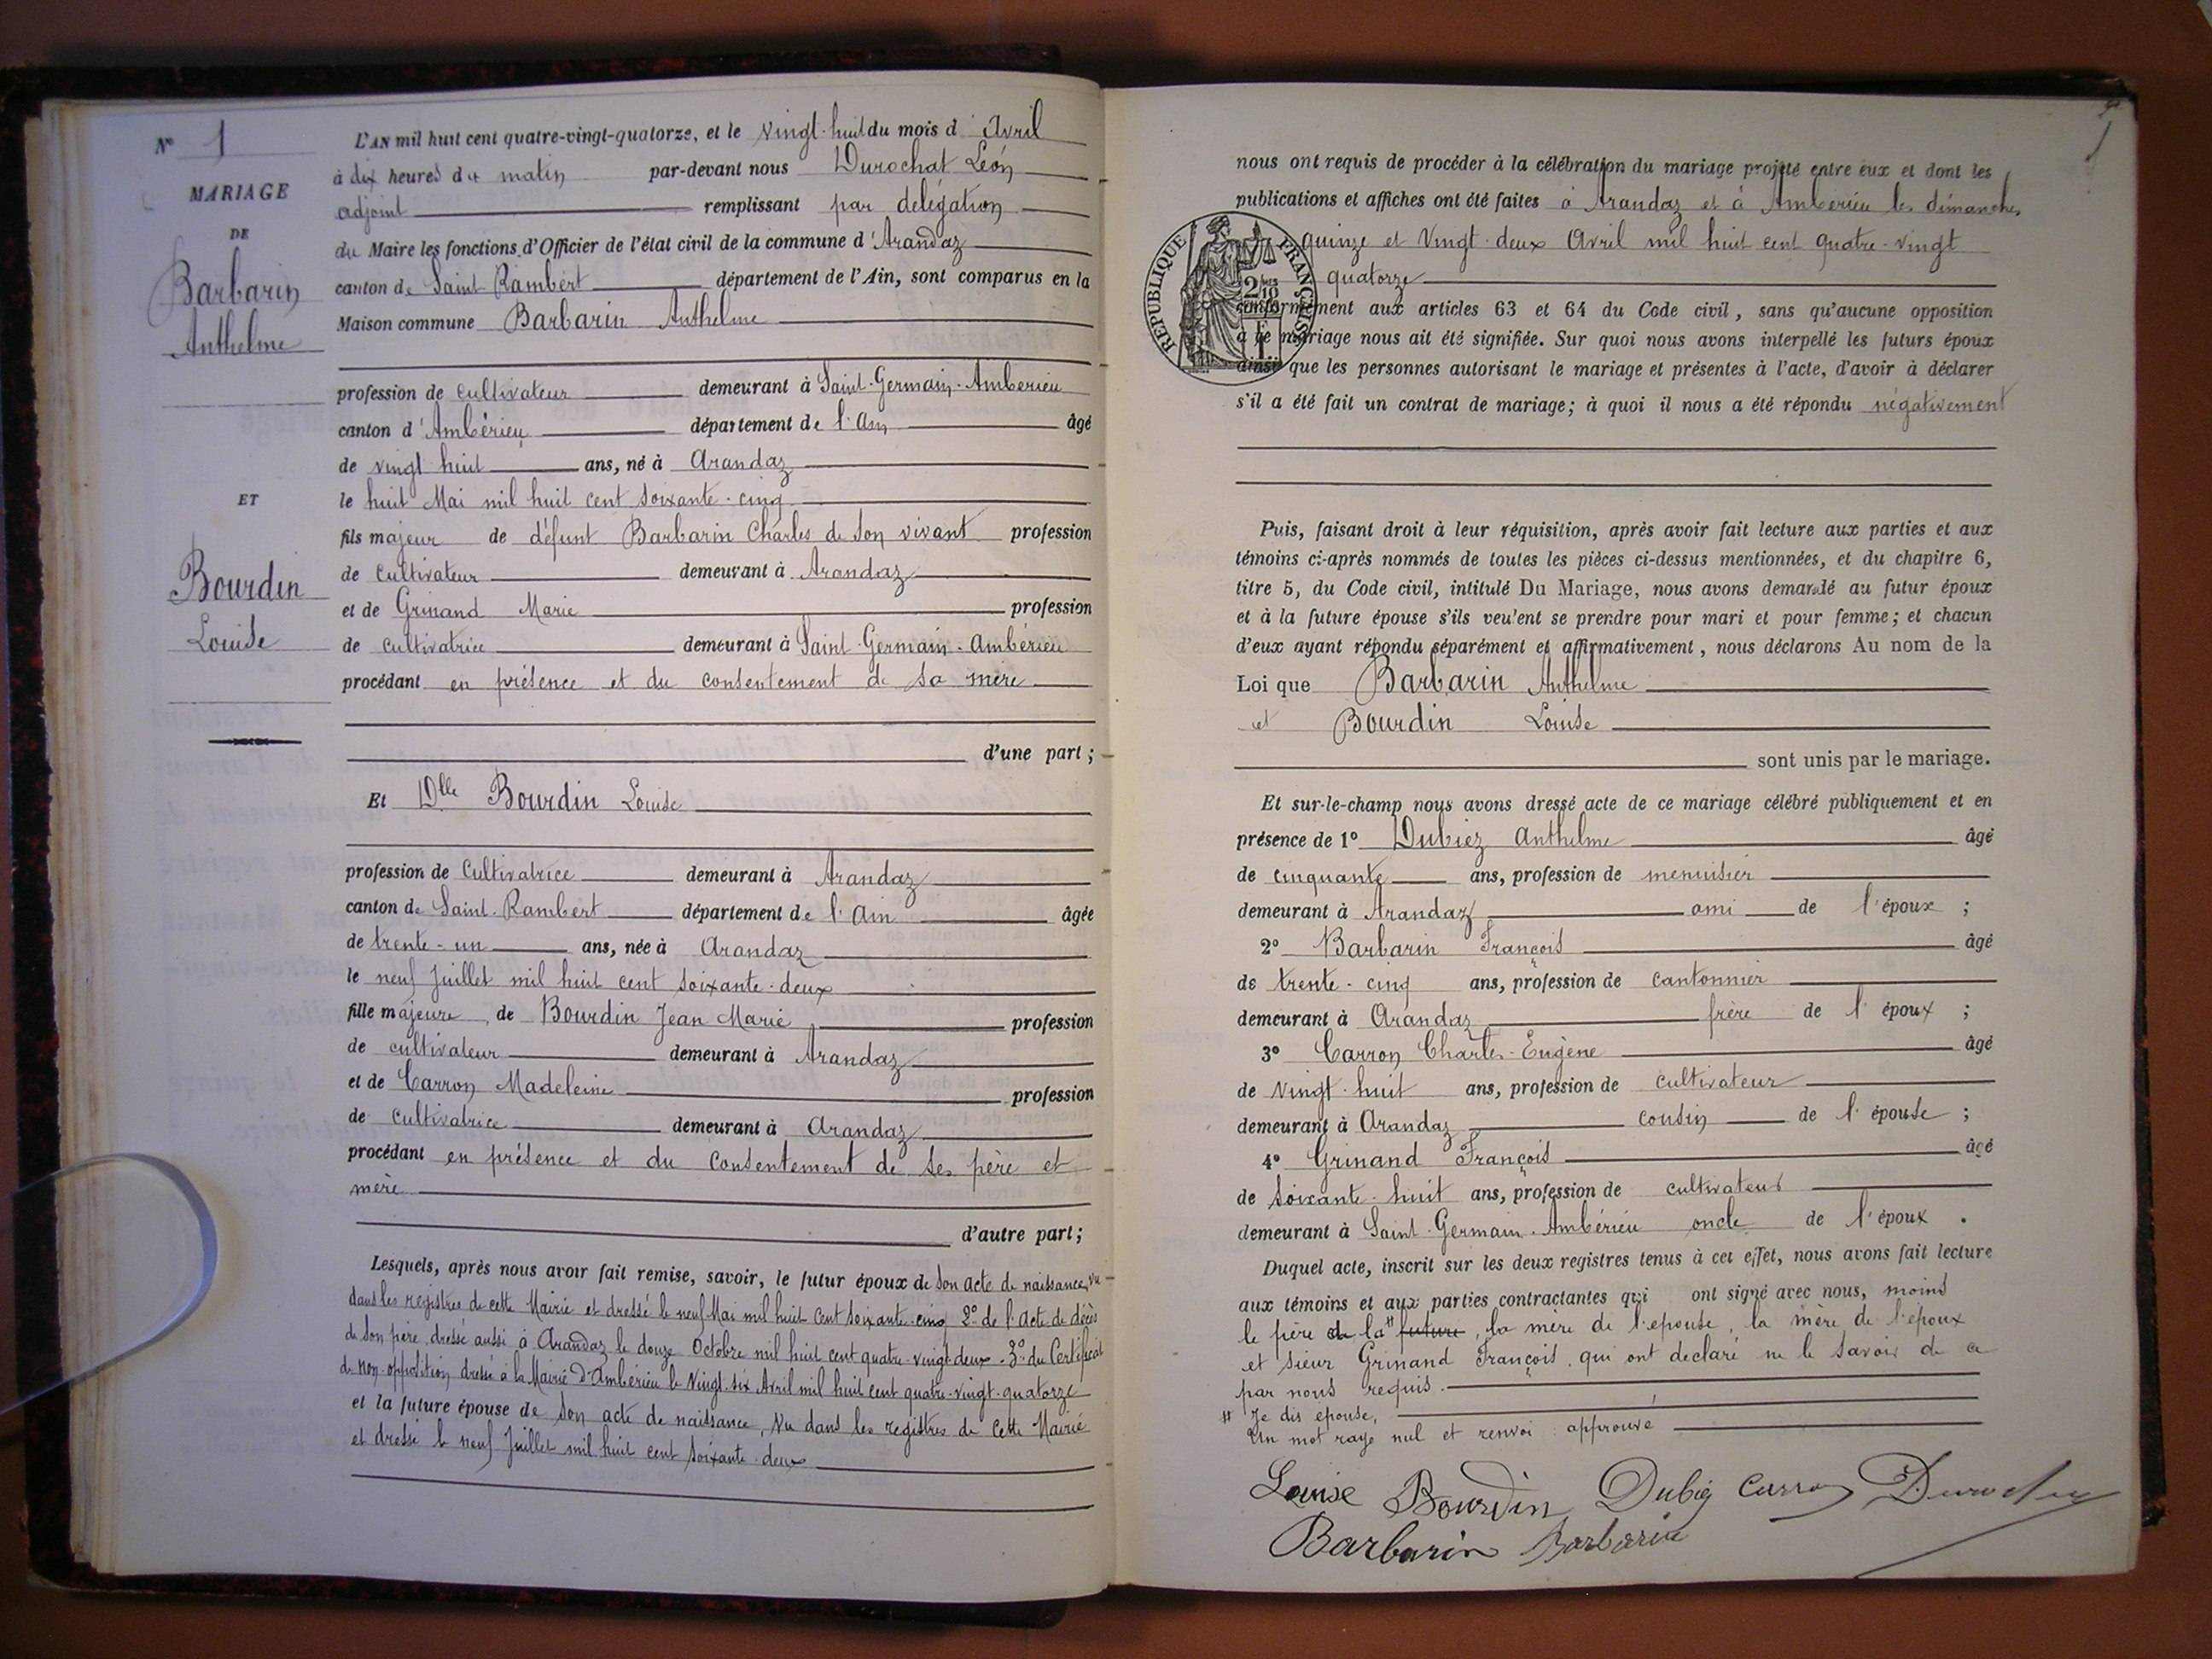 N° 1
MARIAGE
DE
Barbarin
Anthelme
ET
Bourdin
Louise
L'AN mil huit cent quatre-vingt-quatorze, et le vingt-huit du mois d'Avril
à dix heures du matin par-devant nous Durochat Léon
adjoint remplissant par délégation
du Maire les fonctions d'Officier de l'état civil de la commune d'Arandaz
canton de Saint-Rambert département de l'Ain, sont comparus en la
Maison commune Barbarin Anthelme
profession de cultivateur demeurant à Saint-Germain-Ambérieu
canton d'Ambérieu département de l'Ain âgé
de vingt huit ans, né à Arandaz
le huit Mai mil huit cent soixante-cinq
fils majeur de défunt Barbarin Charles de son vivant profession
de cultivateur demeurant à Arandaz
et de Grinand Marie profession
de cultivatrice demeurant à Saint-Germain-Ambérieu
procédant en présence et du consentement de sa mère
d'une part ;
Et Dlle Bourdin Louise
profession de Cultivatrice demeurant à Arandaz
canton de Saint-Rambert département de l'Ain âgée
de trente-un ans, née à Arandaz
le neuf Juillet mil huit cent soixante-deux
fille majeure de Bourdin Jean Marie profession
de cultivateur demeurant à Arandaz
et de Carron Madeleine profession
de cultivatrice demeurant à Arandaz
procédant en présence et du consentement de ses père et
mère
d'autre part ;
Lesquels, après nous avoir fait remise, savoir, le futur époux de son acte de naissance, vu
dans les registres de cette Mairie et dressé le neuf Mai mil huit cent soixante-cinq 2° de l'acte de décès
de son père, dressé aussi à Arandaz le douze Octobre mil huit cent quatre-vingt-deux. 3° du Certificat
de non-opposition dressé à la Mairie d'Ambérieu le vingt-six Avril mil huit cent quatre-vingt-quatorze
et la future épouse de son acte de naissance, vu dans les registres de cette Mairie
et dressé le neuf Juillet mil huit cent soixante-deux
nous ont requis de procéder à la célébration du mariage projeté entre eux et dont les
publications et affiches ont été faites à Arandaz et à Ambérieu les dimanches
quinze et vingt-deux Avril mil huit cent quatre-vingt
quatorze
REPUBLIQUE FRANÇAISE
2/10
conformément aux articles 63 et 64 du Code civil, sans qu'aucune opposition
à ce mariage nous ait été signifiée. Sur quoi nous avons interpellé les futurs époux
ainsi que les personnes autorisant le mariage et présentes à l'acte, d'avoir à déclarer
s'il a été fait un contrat de mariage; à quoi il nous a été répondu négativement
Puis, faisant droit à leur réquisition, après avoir fait lecture aux parties et aux
témoins ci-après nommés de toutes les pièces ci-dessus mentionnées, et du chapitre 6,
titre 5, du Code civil, intitulé Du Mariage, nous avons demandé au futur époux
et à la future épouse s'ils veulent se prendre pour mari et pour femme; et chacun
d'eux ayant répondu séparément et affirmativement, nous déclarons Au nom de la
Loi que Barbarin Anthelme
et Bourdin Louise
sont unis par le mariage.
Et sur-le-champ nous avons dressé acte de ce mariage célébré publiquement et en
présence de 1° Dubiez Anthelme âgé
de cinquante ans, profession de menuisier
demeurant à Arandaz ami de l'époux ;
2° Barbarin François âgé
de trente-cinq ans, profession de cantonnier
demeurant à Arandaz frère de l'époux ;
3° Carron Charles-Eugène âgé
de vingt-huit ans, profession de cultivateur
demeurant à Arandaz cousin de l'épouse ;
4° Grinand François âgé
de soixante-huit ans, profession de cultivateur
demeurant à Saint-Germain-Ambérieu oncle de l'époux .
Duquel acte, inscrit sur les deux registres tenus à cet effet, nous avons fait lecture
aux témoins et aux parties contractantes qui ont signé avec nous, moins
le père de la # future, la mère de l'épouse, la mère de l'époux
et sieur Grinand François, qui ont déclaré ne le savoir de ce
par nous requis.
# Je dis épouse,
Un mot rayé nul et renvoi approuvé
Louise Bourdin Dubiez Carron Durochat
Barbarin Barbarin